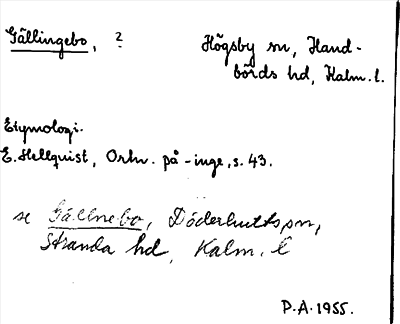 Gällingebo, ? Högsby sn, Hand-
börds hd, Kalm. l.
Etymologi.
E. Hellquist, Ortn. på -inge, s. 43.
se Gällnebo, Döderhults sn,
Stranda hd, Kalm. l
P.A. 1955.